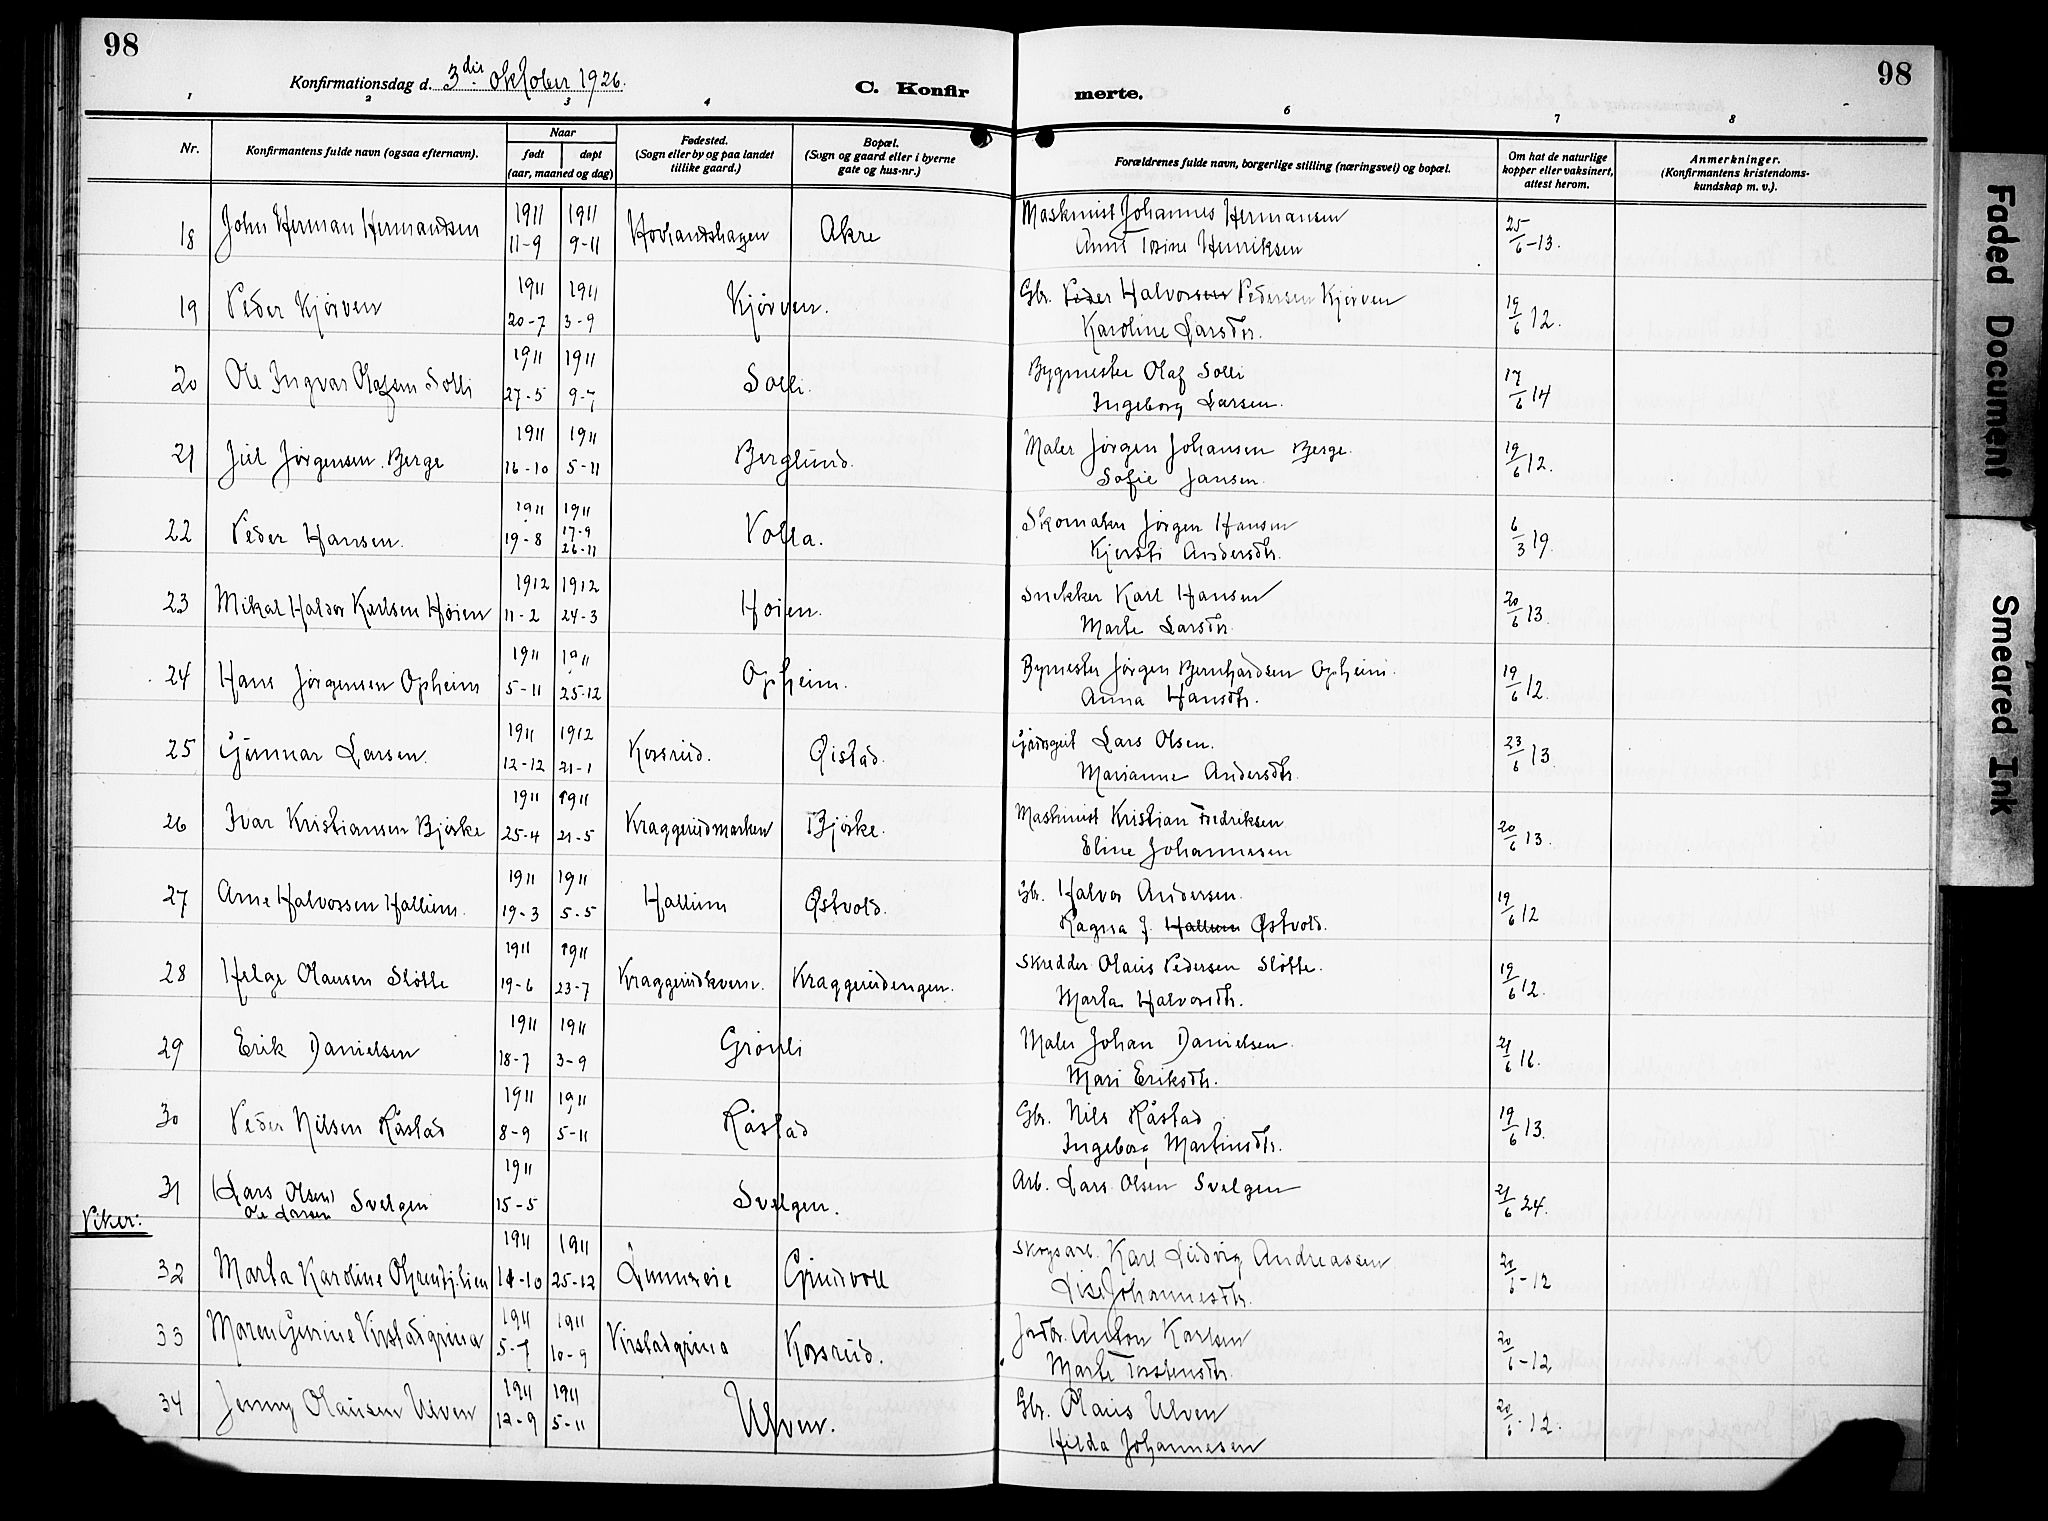 98
Konfirmationsdag d. 3die oktober 1926.
C. Konfirmerte.
98
1 2 3 4 6 7 8
Nr. Konfirmantens fulde navn (ogsaa efternavn). Naar født døpt (aar, maaned og dag) Fødested. (Sogn eller by og paa landet tillike gaard.) Bopæl. (Sogn og gaard eller i byerne gate og hus-nr.) Forældrenes fulde navn, borgerlige stilling (næringsvei) og bopæl. Om hat de naturlige kopper eller vaksinert, attest herom. Anmerkninger. (Konfirmantens kristendoms-kundskap m. v.).
18 John Herman Hermandsen 1911 11-9 1911 9-11 Hovlandshagen Akre Maskinist Johannes Hermansen
Anne Henriksen 25/6-13.
19 Peder Kjørven 1911 20-7 1911 3-9 Kjørven. Gbr. Peder Halvorsen Pedersen Kjørven
Karoline Larsdtr. 19/6 12.
20 Ole Ingvar Olafsen Solli 1911 27-5 1911 9-7 Solli. Bygmester Olaf Solli
Ingeborg Larsen. 17/6 14
21 Juel Jørgensen Berge 1911 16-10 1911 5-11 Berglund. Maler Jørgen Johansen Berge.
Sofie Jansen. 19/6 12.
22 Peder Hansen. 1911 19-8 1911 17-9 26-11 Volla. Skomaker Jørgen Hansen
Kjersti Andersdtr. 6/3 19.
23 Mikal Haldor Karlsen Høien 1912 11-2 1912 24-3 Høien. Snekker Karl Hansen
Marte Larsdtr. 20/6 13.
24 Hans Jørgensen Opheim 1911 5-11 1911 25-12 Opheim. Bymester Jørgen Bernhardsen Opheim.
Anna Hansdtr. 19/6 12.
25 Gunnar Larsen. 1911 12-12 1912 21-1 Korsrud. Øistad. Lars Olsen.
Marianne Andersdtr. 23/6 13.
26 Ivar Kristiansen Bjørke 1911 25-4 1911 21-5 Kraggerudmarken Bjørke. Maskinist Kristian Fredriksen
Eline Johannesen 20/6 13.
27 Arne Halvorsen Hallum. 1911 19-3 1911 5-5 Hallum Østvold. Gbr. Halvor Andersen.
Ragna J. Hallum Østvold. 19/6 12
28 Helge Olausen Slåtte 1911 19-6 1911 23-7 Kraggerudkvern. Kraggerudengen. Skredder Olaus Pedersen Slåtte.
Marta Halvorsdtr. 19/6 12.
29 Erik Danielsen 1911 18-7 1911 3-9 Grønli Maler Johan Danielsen.
Mari Eriksdtr. 21/6 16.
30 Peder Nilsen Råstad 1911 8-9 1911 5-11 Råstad Gbr. Nils Råstad
Ingeborg Martinsdtr. 19/6 13.
31 (Lars Olsen) Ole Larsen Svelgen 1911 15-5 Svelgen. Arb. Lars Olsen Svelgen 21/6 24.
Viker:
32 Marta Karoline 1911 14-10 1911 25-12 Grindvoll Skogsarb. Karl Ludvig Andreassen
Lise Johannesdtr. 6-12
33 Maren Gurine Virstadgrina 1911 5-7 1911 10-9 Virstadgrina Korsrud. Anton Karlsen
Marte Torstensdtr. 20/6-12
34 Jenny Olausen Ulven 1911 12-9 1911 5-11 Ulven. Gbr. Olaus Ulven
Hilda Johannesen 20/6-12.
Faded Document
Smeared Ink